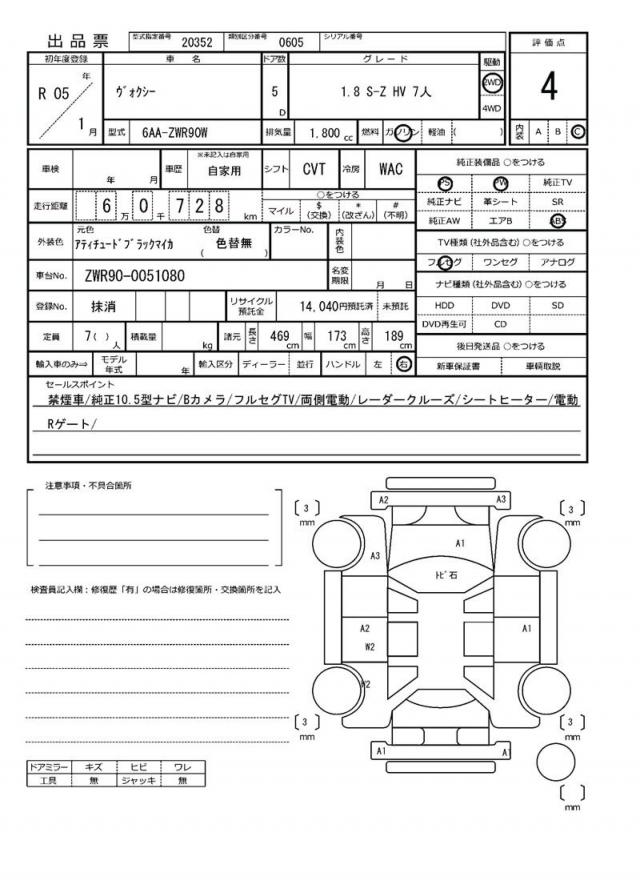 出品票 型式指定番号 20352 類別区分番号 0605 シリアル番号
初年度登録 車名 ドア数 グレード 駆動 評価点
R 05 年 1 月 ヴォクシー 5 D 1.8 S-Z HV 7人 2WD 4WD 4
型式 6AA-ZWR90W 排気量 1.800 cc 燃料 ガソリン 軽油 ( ) 内装 A B C
車検 年 月 車歴 ※未記入は自家用 自家用 シフト CVT 冷房 WAC
走行距離 6 万 0 千 7 2 8 km ○をつける マイル $ (交換) * (改ざん) # (不明)
外装色 元色 アティチュードブラックマイカ 色替 ( 色替無 ) カラーNo. 内装色
車台No. ZWR90-0051080 名変期限 月 日
登録No. 抹消 リサイクル預託金 14,040円預託済 未預託
定員 7( ) 人 積載量 kg 諸元 長さ 469 cm 幅 173 cm 高さ 189 cm
輸入車のみ⇒ モデル年式 年 輸入区分 ディーラー 並行 ハンドル 左 右
純正装備品 ○をつける
PS PW 純正TV
純正ナビ 革シート SR
純正AW エアB ABS
TV種類 (社外品含む) ○をつける
フルセグ ワンセグ アナログ
ナビ種類 (社外品含む) ○をつける
HDD DVD SD
DVD再生可 CD
後日発送品 ○をつける
新車保証書 車輌取説
セールスポイント
禁煙車/純正10.5型ナビ/Bカメラ/フルセグTV/両側電動/レーダークルーズ/シートヒーター/電動
Rゲート/
注意事項・不具合箇所
検査員記入欄：修復歴「有」の場合は修復箇所・交換箇所を記入
ドアミラー キズ ヒビ ワレ
工具 無 ジャッキ 無
A2 A3
3 mm 3 mm
A1
A3
トビ石
A2 A1
W2
W2
3 mm 3 mm
A1 A1
mm